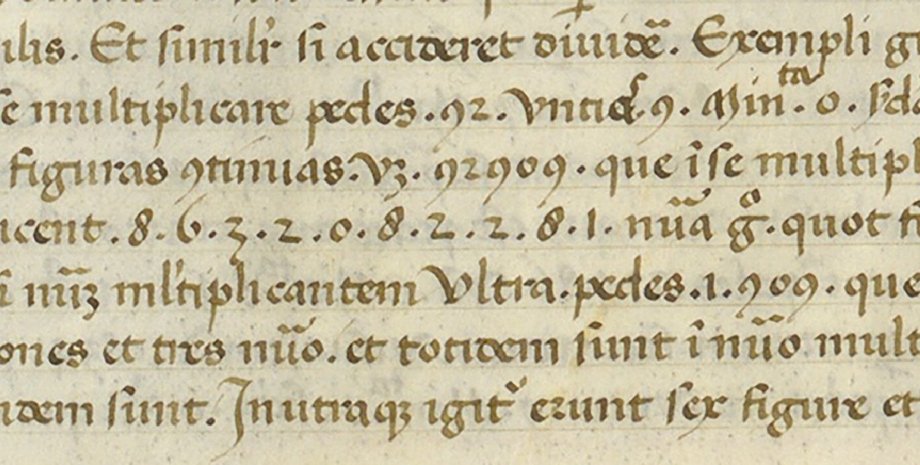 ilis. Et simil'r si accideret diuidē. Exempli g
se multiplicare pedes .92. vntias .9. Min^ta. 0. sed
figuras ꝯtinuas. vꝫ. 92909. que ī se multipl
ucent. 8. 6. 3. 2. 0. 8. 2. 2. 8. 1. nūa g°. quot fi
ī nūꝫ ml'tiplicantem vltra. pedes .1.909. que
ones et tres nūo. et totidem sunt ī nūo mult
idem sunt. In utraqꝫ igit' erunt sex figure et